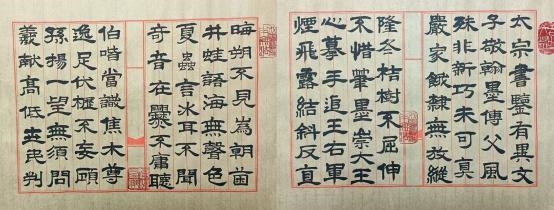 太宗書鑒有異文
子敬翰墨傳父風
殊非新巧未可真
嚴家餓隸無放縱
隆冬枯樹不屈伸
不惜筆墨崇大王
心摹手追王右軍
煙飛露結斜反直
晦朔不見為朝菌
井蛙語海無聲色
夏蟲言冰耳不聞
奇音在爨不庸聽
伯喈當識焦木尊
逸足伏櫪不妄顧
孫揚一望無須問
羲獻高低世民判